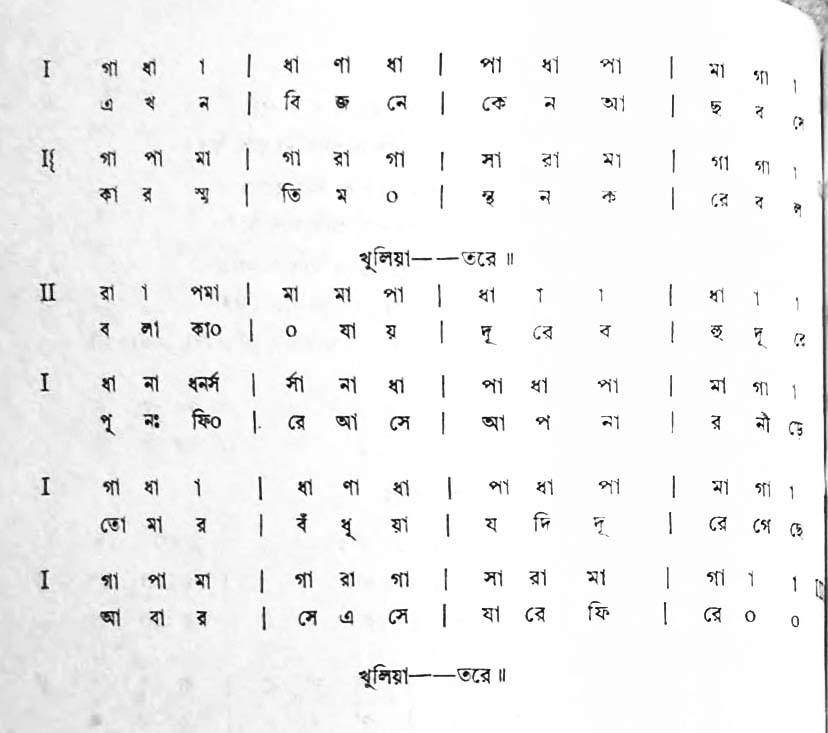 I গা ধা া | ধা ণা ধা | পা ধা পা | মা গা া
এ খ ন | বি জ নে | কে ন আ | ছ ব সে
I{ গা পা মা | গা রা গা | সা রা মা | গা গা া
কা র স্মৃ | তি ম ০ | ন্থ ন ক | রে ব ল
খুলিয়া——তরে ॥
II রা া পমা | মা মা পা | ধা া া | ধা া া
ব লা কা০ | ০ যা য় | দূ রে ব | হু দূ রে
I ধা না ধনর্স | র্সা না ধা | পা ধা পা | মা গা া
পূ নঃ ফি০ | রে আ সে | আ প না | র নী ড়ে
I গা ধা া | ধা ণা ধা | পা ধা পা | মা গা া
তো মা র | বঁ ধু য়া | য দি দূ | রে গে ছে
I গা পা মা | গা রা গা | সা রা মা | গা া া II
আ বা র | সে এ সে | যা রে ফি | রে ০ ০
খুলিয়া——তরে ॥